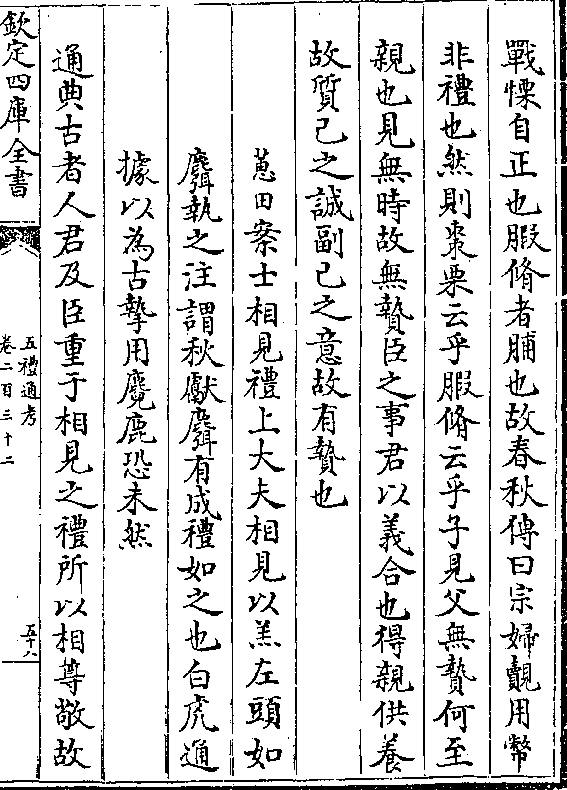 戰慄自正也腶脩者脯也故春秋傳曰宗婦覿用幣
非禮也然則棗栗云乎腶脩云乎子見父無贄何至
親也見無時故無贄臣之事君以義合也得親供養
故質己之誠副己之意故有贄也
蕙田案士相見禮上大夫相見以羔左頭如
麛執之注謂秋獻麛有成禮如之也白虎通
據以為古摯用麑鹿恐未然
通典古者人君及臣重于相見之禮所以相等敬故
欽定四庫全書
五禮通考
卷二百三十二
五十八